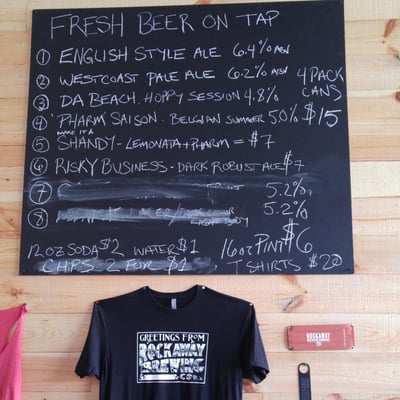 FRESH BEER ON TAP
1 ENGLISH STYLE ALE 6.4% ABV
2 WESTCOAST PALE ALE 6.2% ABV
4 PACK
CANS
$15
3 DA BEACH, HOPPY SESSION 4.8%
4 'PHARM' SAISON - BELGIAN SUMMER 5.0%
MAKE IT A
5 SHANDY - LEMONATA + PHARM = $7
6 RISKY BUSINESS - DARK ROBUST ALE $7
7 5.2%
8 5.2%
12oz SODA $2 WATER $1
16oz PINT $6
CHIPS 2 FOR $1
T SHIRTS $20
GREETINGS FROM
ROCKAWAY
BREWING
ROCKAWAY